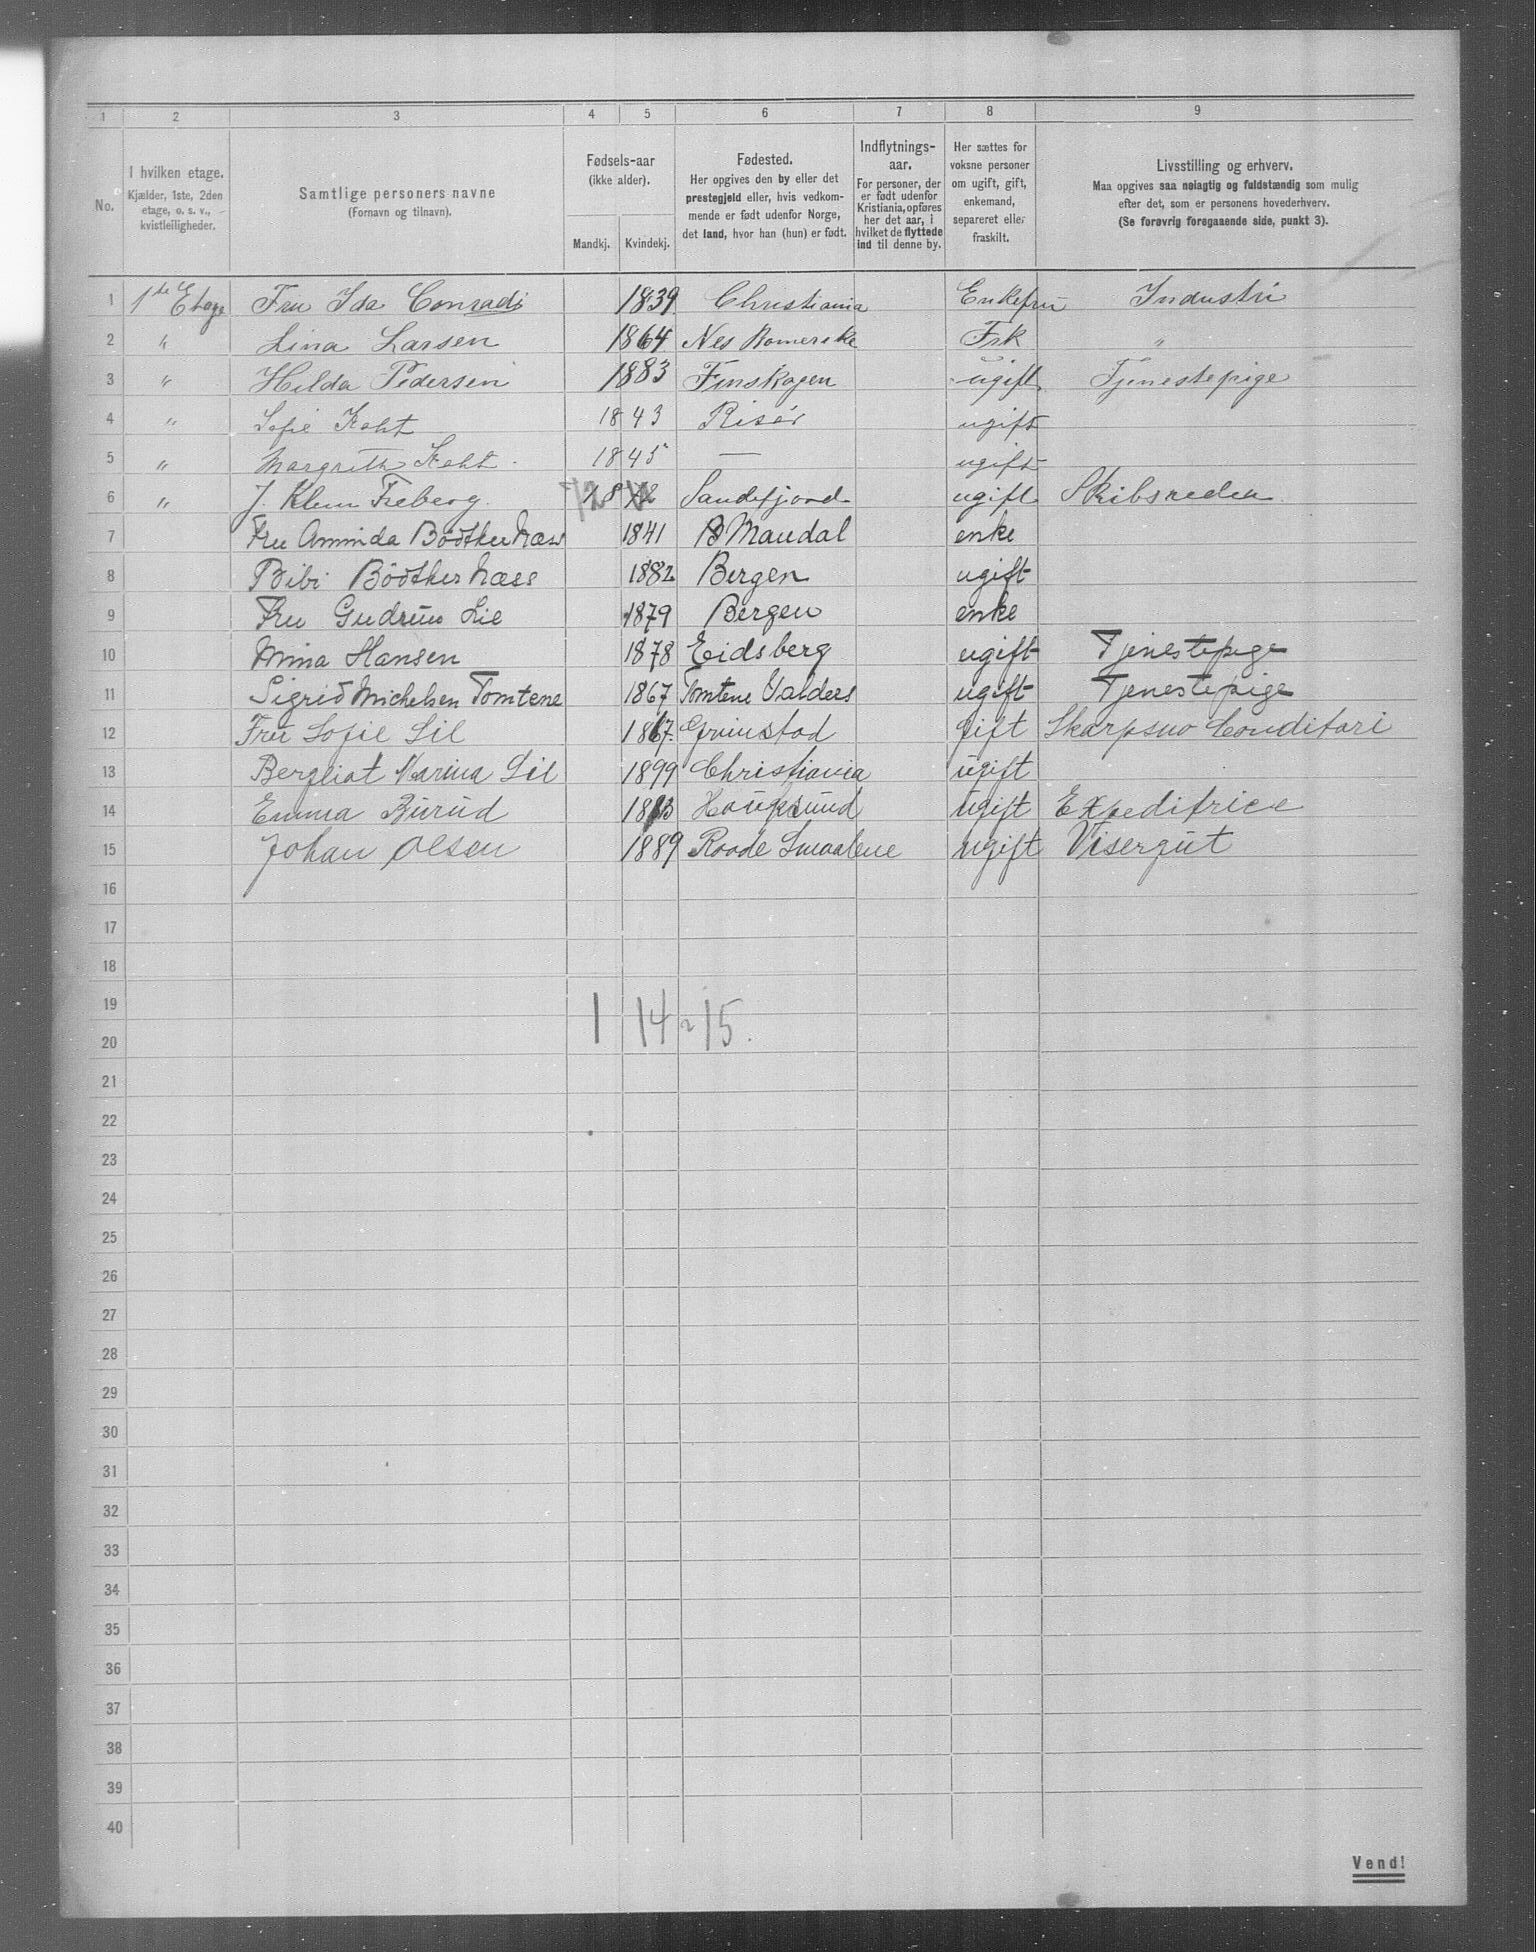 1 2 3 4 5 6 7 8 9
No.
I hvilken etage.
Kjælder, 1ste, 2den
etage, o. s. v.,
kvistleiligheder.
Samtlige personers navne
(Fornavn og tilnavn).
Fødsels-aar
(ikke alder).
Mandkj. Kvindekj.
Fødested.
Her opgives den by eller det
prestegjeld eller, hvis vedkom-
mende er født udenfor Norge,
det land, hvor han (hun) er født.
Indflytnings-
aar.
For personer, der
er født udenfor
Kristiania, opføres
her det aar, i
hvilket de flyttede
ind til denne by.
Her sættes for
voksne personer
om ugift, gift,
enkemand,
separeret eller
fraskilt.
Livsstilling og erhverv.
Maa opgives saa nøiagtig og fuldstændig som mulig
efter det, som er personens hovederhverv.
(Se forøvrig foregaaende side, punkt 3).
1 1ste Etage Fru Ida Conradi 1839 Christiania Enkefru Industri
2 " Lina Larsen 1864 Nes Romerike Frk "
3 " Hilda Pedersen 1883 Finskogen ugift Tjenestepige
4 " Sofie Koht 1843 Risör ugift
5 " Margrethe Koht. 1845 — ugift
6 " J. Klem 72 18 Sandefjord ugift Skibsreder
7 Fru Aminda Bödtker Næss 1841 Mandal enke
8 Bibi Bödtker Næss 1882 Bergen ugift
9 Fru Gudrun Lie 1879 Bergen enke
10 Mina Hansen 1878 Eidsberg ugift Tjenestepige
11 Sigrid Michelsen Tomtene 1867 Tomtene Valders ugift Tjenestepige
12 Fru Sofie Lil 1867 Grimstad gift Skarpsno Conditori
13 Bergliot Marina Lil 1899 Christiania ugift
14 Emma Burud 18 Hougsund ugift Expeditrice
15 Johan Olsen 1889 Raade Smaalene ugift Visergut
16
17
18
19
1 14 = 15.
20
21
22
23
24
25
26
27
28
29
30
31
32
33
34
35
36
37
38
39
40
Vend!